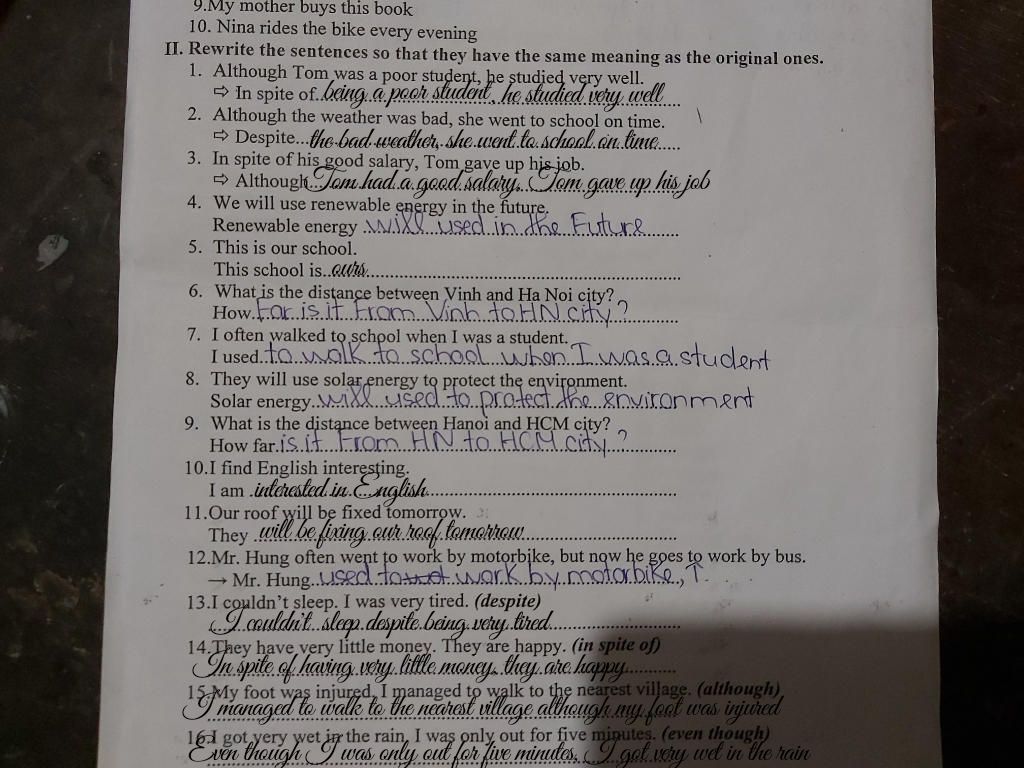 9.My mother buys this book
10. Nina rides the bike every evening
II. Rewrite the sentences so that they have the same meaning as the original ones.
1. Although Tom was a poor student, he studied very well.
⇨ In spite of..being a poor student, he studied very well....
2. Although the weather was bad, she went to school on time.
⇨ Despite...the bad weather, she went to school on time.....
3. In spite of his good salary, Tom gave up his job.
⇨ Although..Tom had a good salary, Tom gave up his job
4. We will use renewable energy in the future.
Renewable energy .will used in the Future.......
5. This is our school.
This school is..ours.......
6. What is the distance between Vinh and Ha Noi city?
How.Far is it From Vinh to HN city?..........
7. I often walked to school when I was a student.
I used.to walk to school when I was a student
8. They will use solar energy to protect the environment.
Solar energy..will used to protect the environment
9. What is the distance between Hanoi and HCM city?
How far.is it From HN to HCM city?..........
10.I find English interesting.
I am .interested in English.......
11.Our roof will be fixed tomorrow.
They .will be fixing our roof tomorrow.......
12.Mr. Hung often went to work by motorbike, but now he goes to work by bus.
→ Mr. Hung..used to work by motorbike.,
13.I couldn't sleep. I was very tired. (despite)
I couldn't sleep despite being very tired.......
14.They have very little money. They are happy. (in spite of)
In spite of having very little money, they are happy.......
15.My foot was injured, I managed to walk to the nearest village. (although)
I managed to walk to the nearest village although my foot was injured
16.I got very wet in the rain, I was only out for five minutes. (even though)
Even though I was only out for five minutes, I got very wet in the rain